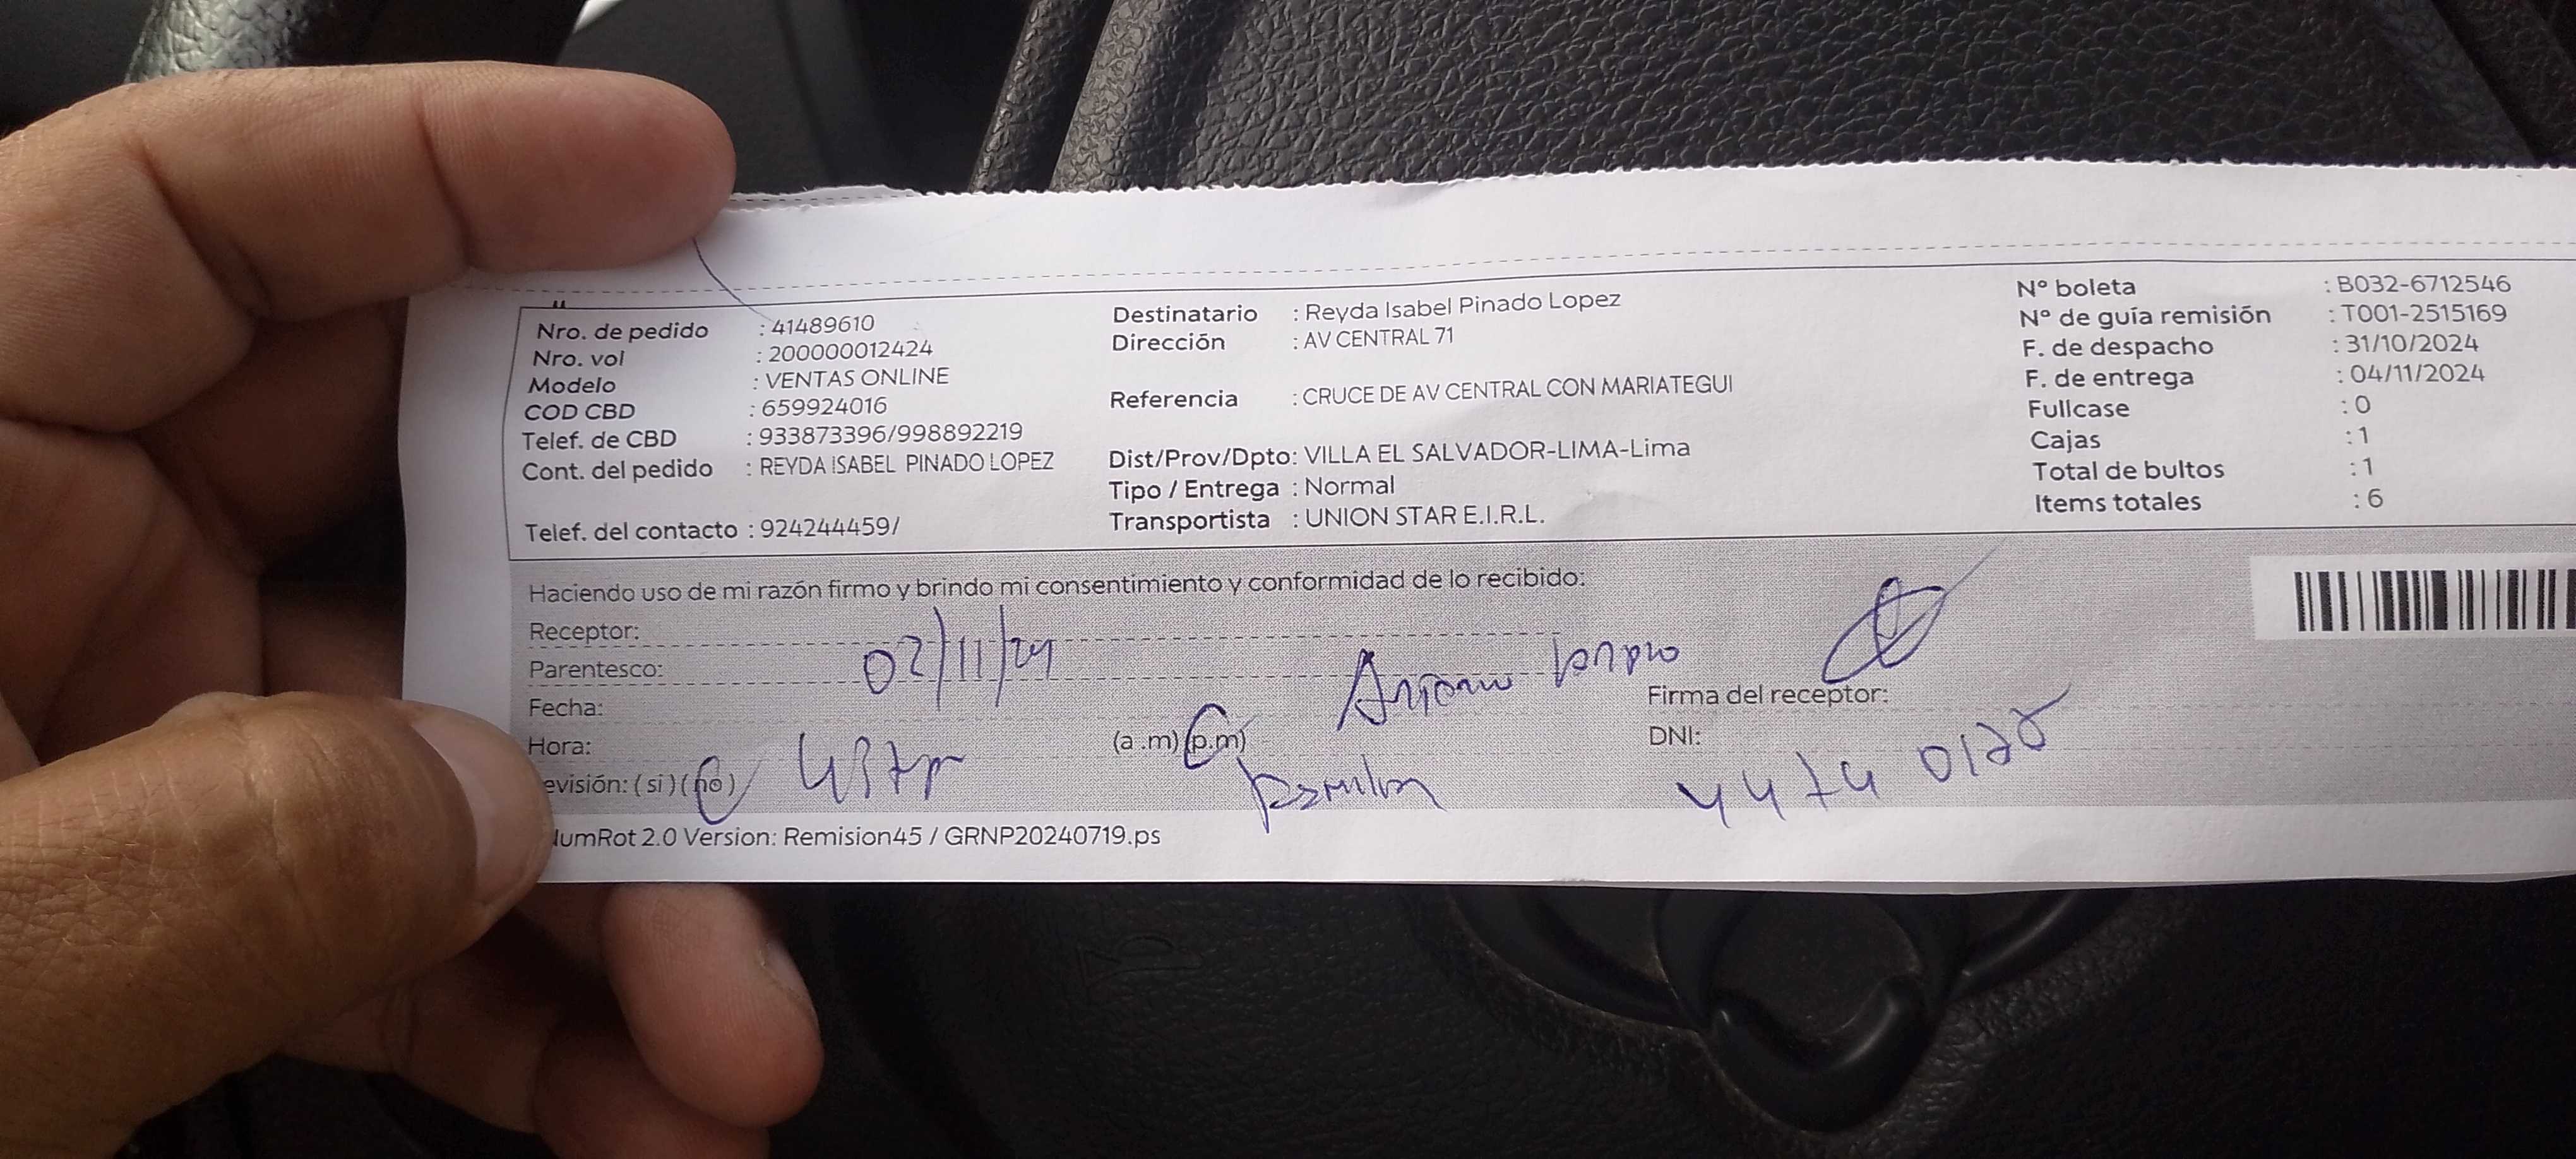 Nro. de pedido : 41489610
Nro. vol : 200000012424
Modelo : VENTAS ONLINE
COD CBD : 659924016
Telef. de CBD : 933873396/998892219
Cont. del pedido : REYDA ISABEL PINADO LOPEZ
Telef. del contacto : 924244459/
Destinatario : Reyda Isabel Pinado Lopez
Dirección : AV CENTRAL 71
Referencia : CRUCE DE AV CENTRAL CON MARIATEGUI
Dist/Prov/Dpto: VILLA EL SALVADOR-LIMA-Lima
Tipo / Entrega : Normal
Transportista : UNION STAR E.I.R.L.
Nº boleta : B032-6712546
Nº de guía remisión : T001-2515169
F. de despacho : 31/10/2024
F. de entrega : 04/11/2024
Fullcase : 0
Cajas : 1
Total de bultos : 1
Items totales : 6
Haciendo uso de mi razón firmo y brindo mi consentimiento y conformidad de lo recibido:
Receptor:
Parentesco: 02/11/24
Fecha:
Hora: (a .m) (p.m)
evisión: ( si ) ( no )
Firma del receptor:
DNI:
umRot 2.0 Version: Remision45 / GRNP20240719.ps